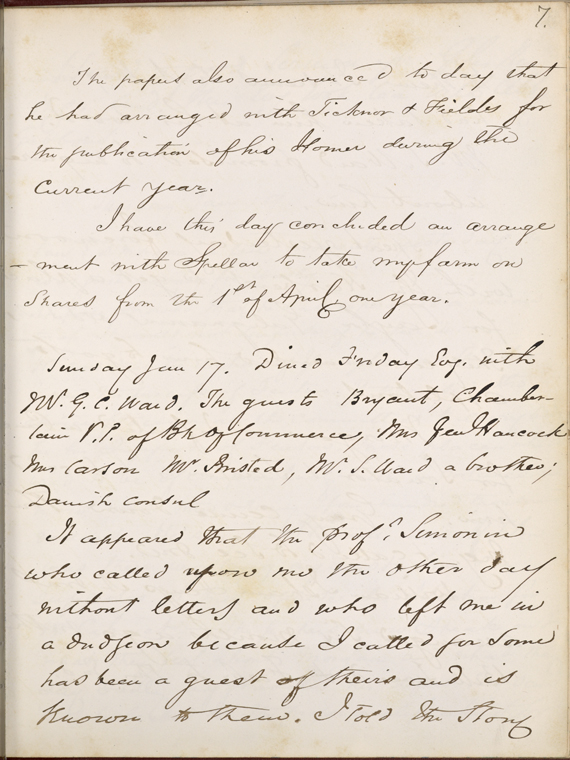 7.
The papers also announced to day that
he had arranged with Ticknor & Fields for
the publication of his Homer during the
Current year.
I have this day concluded an arrange
-ment with Spellar to take my farm on
Shares from the 1st of April, one year.
Sunday Jan 17. Dined Friday Evg. with
Mr. G. C. Ward. The guests Bryant, Chamber-
lain V.P. of Bk of Commerce, Mrs Genl Hancock
Mrs Carson Mr. Bristed, Mr. S. Ward a brother;
Danish consul
It appeared that the Profr. Simonin
who called upon me the other day
without letters and who left me in
a dudgeon because I called for some
has been a guest of theirs and is
known to them. I told the Story